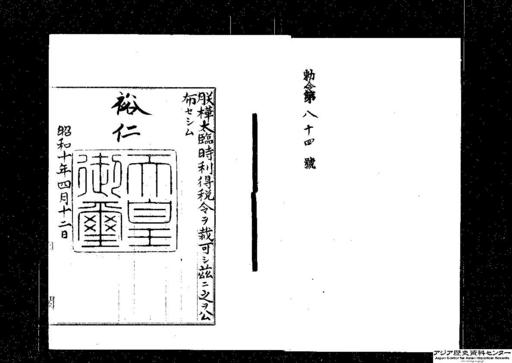 勅令第八十四號
朕樺太臨時利得税令ヲ裁可シ茲ニ之ヲ公
布セシム
裕仁
天皇御璽
昭和十年四月十二日
アジア歴史資料センター
Japan Center for Asian Historical Records